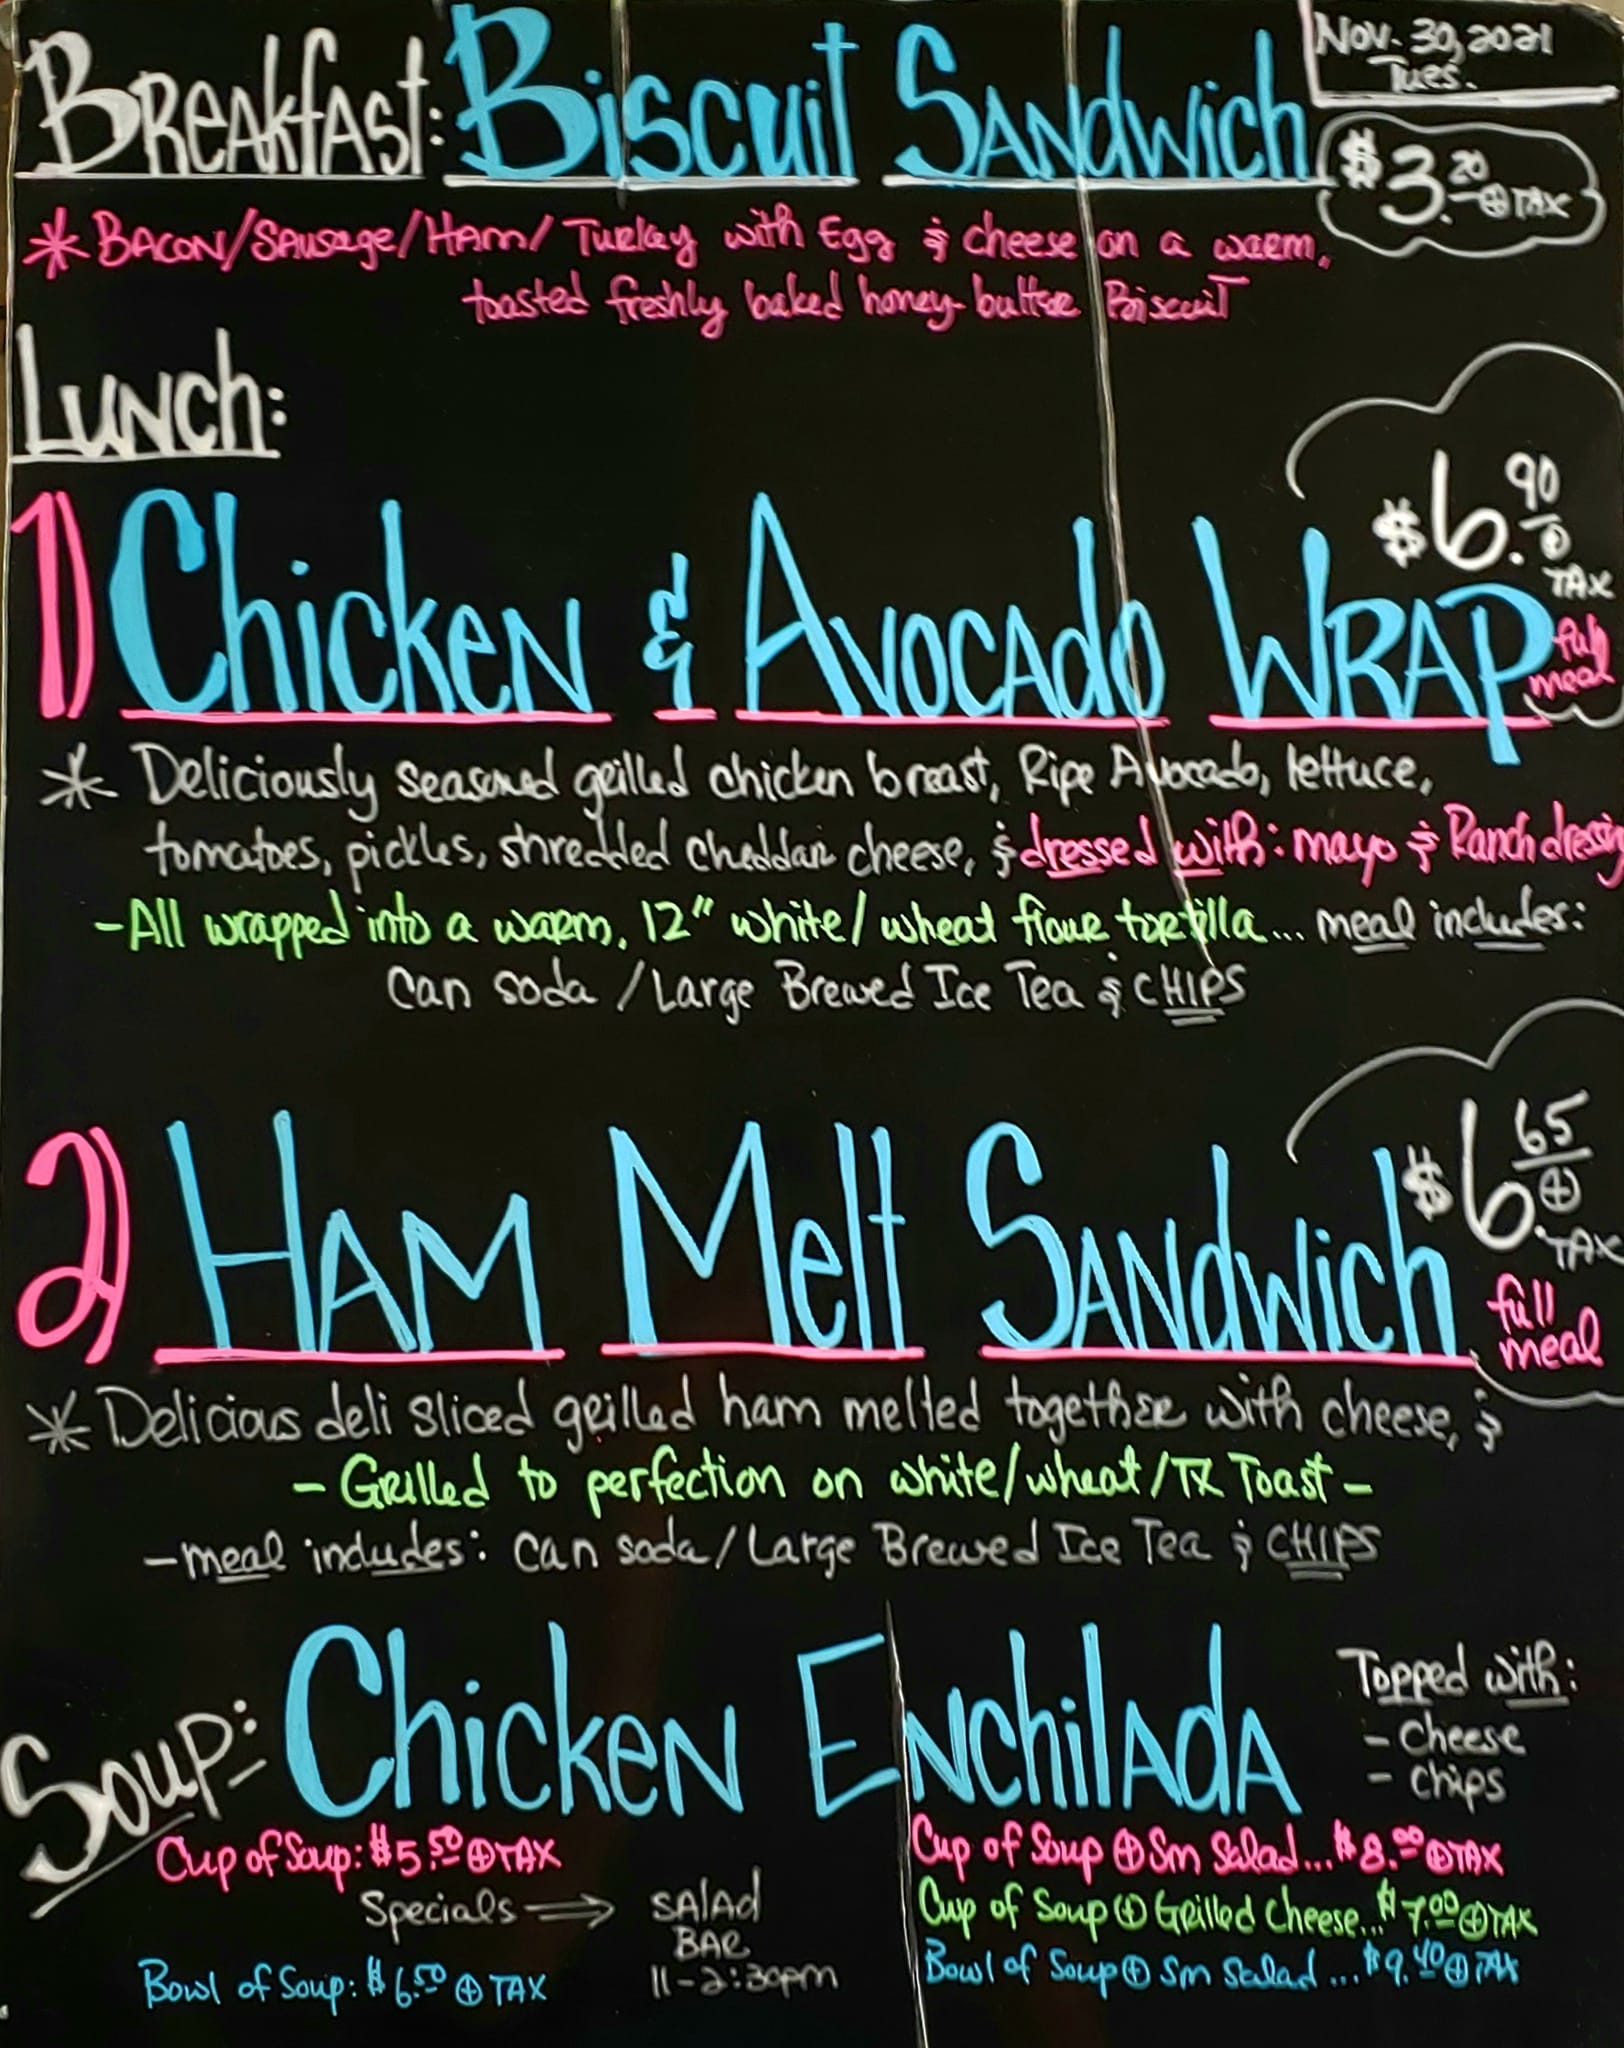 Breakfast: Biscuit Sandwich
Nov. 30, 2021
Tues.
$3.20 ⊕ TAX
* Bacon/Sausage/Ham/Turkey with Egg & cheese on a warm,
toasted freshly baked honey-butter Biscuit
Lunch:
$6.90 ⊕ TAX
full meal
1) Chicken & Avocado Wrap
* Deliciously seasoned grilled chicken breast, Ripe Avocado, lettuce,
tomatoes, pickles, shredded cheddar cheese, & dressed with: mayo & Ranch dressing
- All wrapped into a warm, 12" white/wheat flour tortilla... meal includes:
Can soda / Large Brewed Ice Tea & CHIPS
$6.65 ⊕ TAX
full meal
2) Ham Melt Sandwich
* Delicious deli sliced grilled ham melted together with cheese, &
- Grilled to perfection on white/wheat/TX Toast -
- meal includes: Can soda / Large Brewed Ice Tea & CHIPS
Soup: Chicken Enchilada
Topped with:
- Cheese
- Chips
Cup of Soup: $5.50 ⊕ TAX
Specials →
Bowl of Soup: $6.50 ⊕ TAX
SALAD
BAR
11-2:30pm
Cup of Soup ⊕ Sm Salad... $8.00 ⊕ TAX
Cup of Soup ⊕ Grilled Cheese... $7.00 ⊕ TAX
Bowl of Soup ⊕ Sm Salad... $9.40 ⊕ TAX